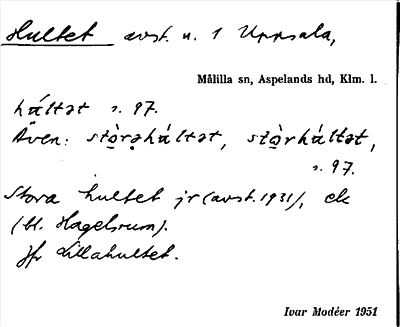 Hultet avst. u. 1 Uppsala,
Målilla sn, Aspelands hd, Klm. l.
hál̵tət s. 97.
Även: stò̱rəhál̵tət, stò̱rhál̵tət,
s. 97.
Stora hultet jr (avst. 1931), ek
(bl. Hagelsrum).
Jfr Lillahultet.
Ivar Modéer 1951